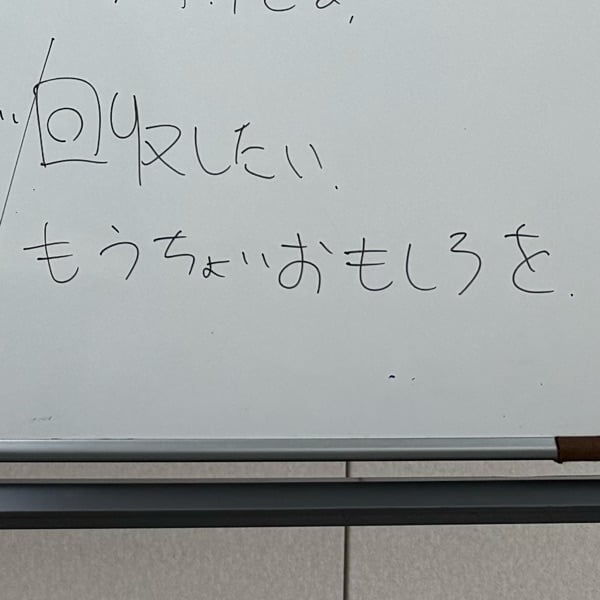 回収したい.
もうちょいおもしろを.